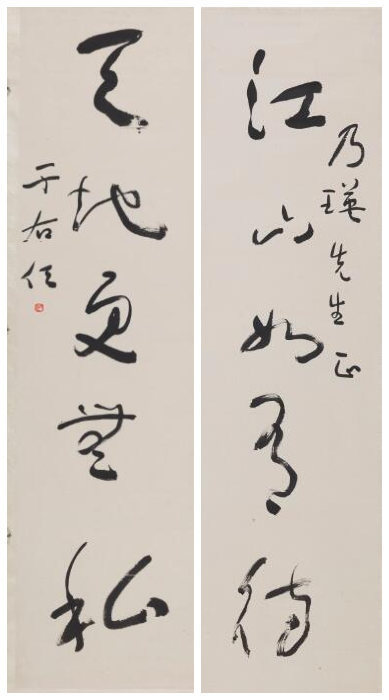 乃瑛先生正
江山如有待
天地更無私
于右任